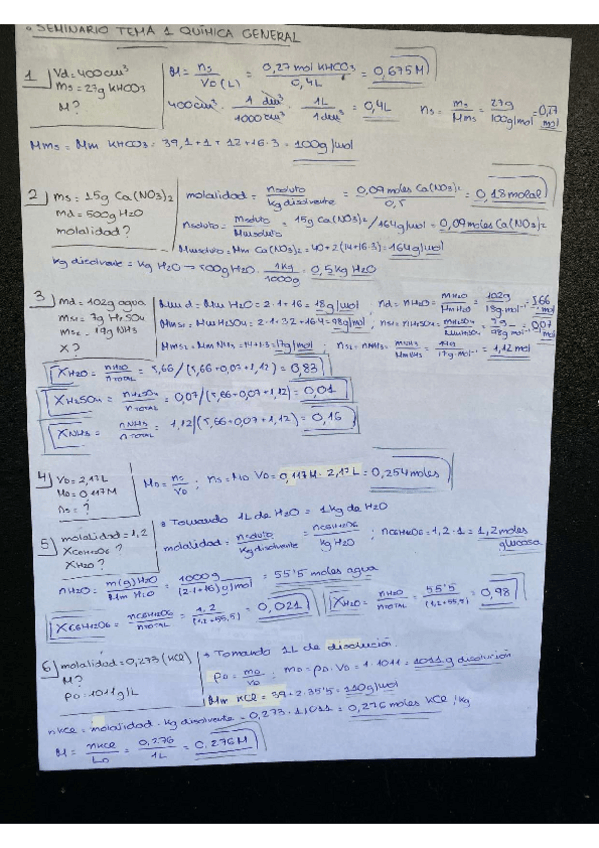 • SEMINARIO TEMA 1 QUÍMICA GENERAL
1 Vd = 400 cm³
ms = 27g KHCO3
M?
M = ns / VD (L) = 0,27 mol KHCO3 / 0,4L = 0,675 M
400 cm³ · 1 dm³ / 1000 cm³ · 1L / 1 dm³ = 0,4L
ns = ms / Mms = 27g / 100g/mol = 0,27 mol
Mms = Mm KHCO3 = 39,1 + 1 + 12 + 16·3 = 100g/mol
2 ms = 15g Ca(NO3)2
md = 500g H2O
molalidad?
molalidad = nsoluto / kg disolvente = 0,09 moles Ca(NO3)2 / 0,5 = 0,18 molal
nsoluto = msoluto / Mmsoluto = 15g Ca(NO3)2 / 164g/mol = 0,09 moles Ca(NO3)2
Mmsoluto = Mm Ca(NO3)2 = 40 + 2(14+16·3) = 164g/mol
kg disolvente = kg H2O → 500g H2O · 1kg / 1000g = 0,5 kg H2O
3 md = 102g agua
ms1 = 7g H2SO4
ms2 = 19g NH3
X?
Mm d = Mm H2O = 2·1 + 16 = 18g/mol
nd = nH2O = mH2O / Mm H2O = 102g / 18g·mol⁻¹ = 5,66 mol
Mms1 = Mm H2SO4 = 2·1 + 32 + 16·4 = 98g/mol
ns1 = nH2SO4 = mH2SO4 / MmH2SO4 = 7g / 98g·mol⁻¹ = 0,07 mol
Mms2 = Mm NH3 = 14+1·3 = 17g/mol
ns2 = nNH3 = mNH3 / MmNH3 = 19g / 17g·mol⁻¹ = 1,12 mol
XH2O = nH2O / nTOTAL = 5,66 / (5,66 + 0,07 + 1,12) = 0,83
XH2SO4 = nH2SO4 / nTOTAL = 0,07 / (5,66 + 0,07 + 1,12) = 0,01
XNH3 = nNH3 / nTOTAL = 1,12 / (5,66 + 0,07 + 1,12) = 0,16
4 VD = 2,17L
MD = 0,117M
ns = ?
MD = ns / VD ; ns = MD · VD = 0,117M · 2,17L = 0,254 moles
5 molalidad = 1,2
XC6H12O6 ?
XH2O ?
• Tomando 1L de H2O = 1 kg de H2O
molalidad = nsoluto / kg disolvente = nC6H12O6 / kg H2O ; nC6H12O6 = 1,2 · 1 = 1,2 moles glucosa
nH2O = m(g) H2O / Mm H2O = 1000g / (2·1+16)g/mol = 55'5 moles agua
XC6H12O6 = nC6H12O6 / nTOTAL = 1,2 / (1,2 + 55,5) = 0,021
XH2O = nH2O / nTOTAL = 55'5 / (1,2 + 55,5) = 0,98
6 molalidad = 0,273 (KCl)
M?
ρD = 1011 g/L
• Tomando 1L de disolución.
ρD = mD / VD ; mD = ρD · VD = 1 · 1011 = 1011 g disolución
Mm KCl = 39 + 2·35'5 = 110g/mol
nKCl = molalidad · kg disolvente = 0,273 · 1,011 = 0,276 moles KCl / kg
M = nKCl / LD = 0,276 / 1L = 0,276 M